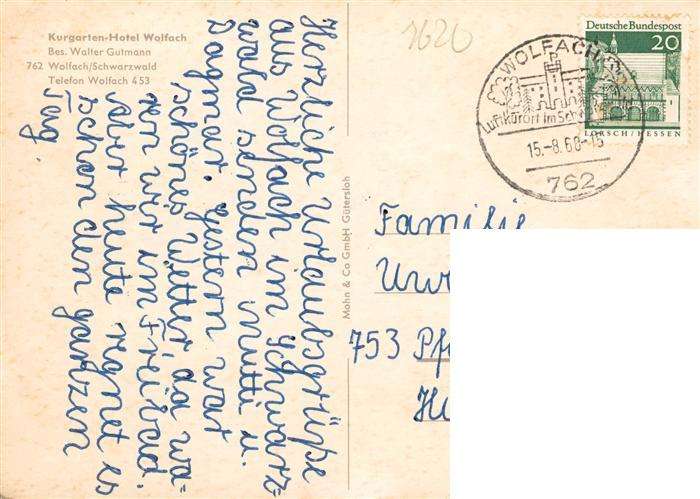 Kurgarten-Hotel Wolfach
Bes. Walter Gutmann
762 Wolfach/Schwarzwald
Telefon Wolfach 453
Herrliche Urlaubsgrüße
aus Wolfach im Schwarz-
wald senden Mutti u.
Dagmar. Gestern war
schönes Wetter, da wa-
ren wir im Freibad.
Aber heute regnet es
schon den ganzen
Tag.
Mohn & Co GmbH Gütersloh
1620
WOLFACH
Luftkurort im
15.-8.68-15
762
Deutsche Bundespost
20
LORSCH/HESSEN
Familie
753